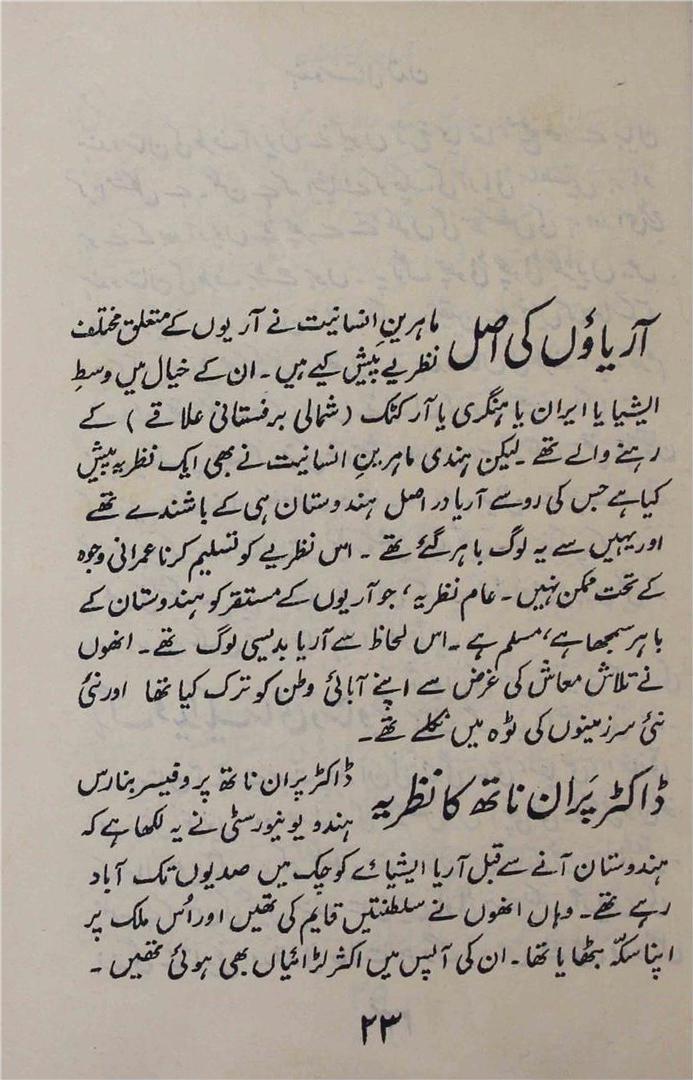 آریاؤں کی اصل
ماہرینِ انسانیت نے آریوں کے متعلق مختلف
نظریے پیش کیے ہیں۔ ان کے خیال میں وسطِ
ایشیا یا ایران یا ہنگری یا آرکٹک (شمالی برفستانی علاقے) کے
رہنے والے تھے۔ لیکن ہندی ماہرینِ انسانیت نے بھی ایک نظریہ پیش
کیا ہے جس کی رو سے آریا دراصل ہندوستان ہی کے باشندے تھے
اور یہیں سے یہ لوگ باہر گئے تھے۔ اس نظریے کو تسلیم کرنا عمرانی وجوہ
کے تحت ممکن نہیں۔ عام نظریہ، جو آریوں کے مستقر کو ہندوستان کے
باہر سمجھا ہے، مسلم ہے۔ اس لحاظ سے آریا بدیسی لوگ تھے۔ انھوں
نے تلاش معاش کی غرض سے اپنے آبائی وطن کو ترک کیا تھا اور نئی
نئی سرزمینوں کی ٹوہ میں نکلے تھے۔
ڈاکٹر پَران ناتھ کا نظریہ
ڈاکٹر پران ناتھ پروفیسر بنارس
ہندو یونیورسٹی نے یہ لکھا ہے کہ
ہندوستان آنے سے قبل آریا ایشیاے کوچک میں صدیوں تک آباد
رہے تھے۔ وہاں انھوں نے سلطنتیں قایم کی تھیں اور اُس ملک پر
اپنا سکّہ بٹھایا تھا۔ ان کی آپس میں اکثر لڑائیاں بھی ہوئی تھیں۔
۲۳